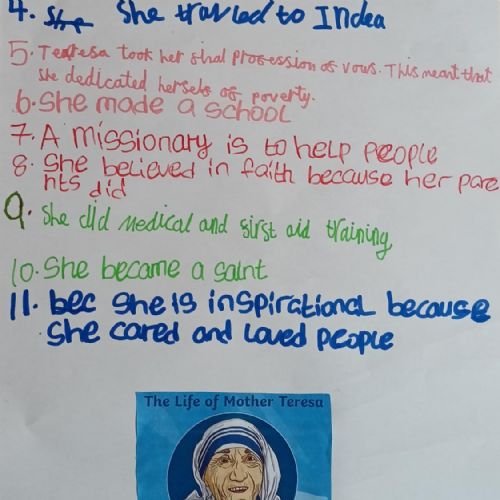 4. She She travled to Indea
5. Tearesa took her shal profession of vous. This meant that
she dedicated herself of poverty.
6. She made a school
7. A missionary is to help people
8. She believed in faith because her pare
nts did
9. She did medical and first aid training,
10. She became a saint
11. bec she is inspirational because
she cared and loved people
The Life of Mother Teresa